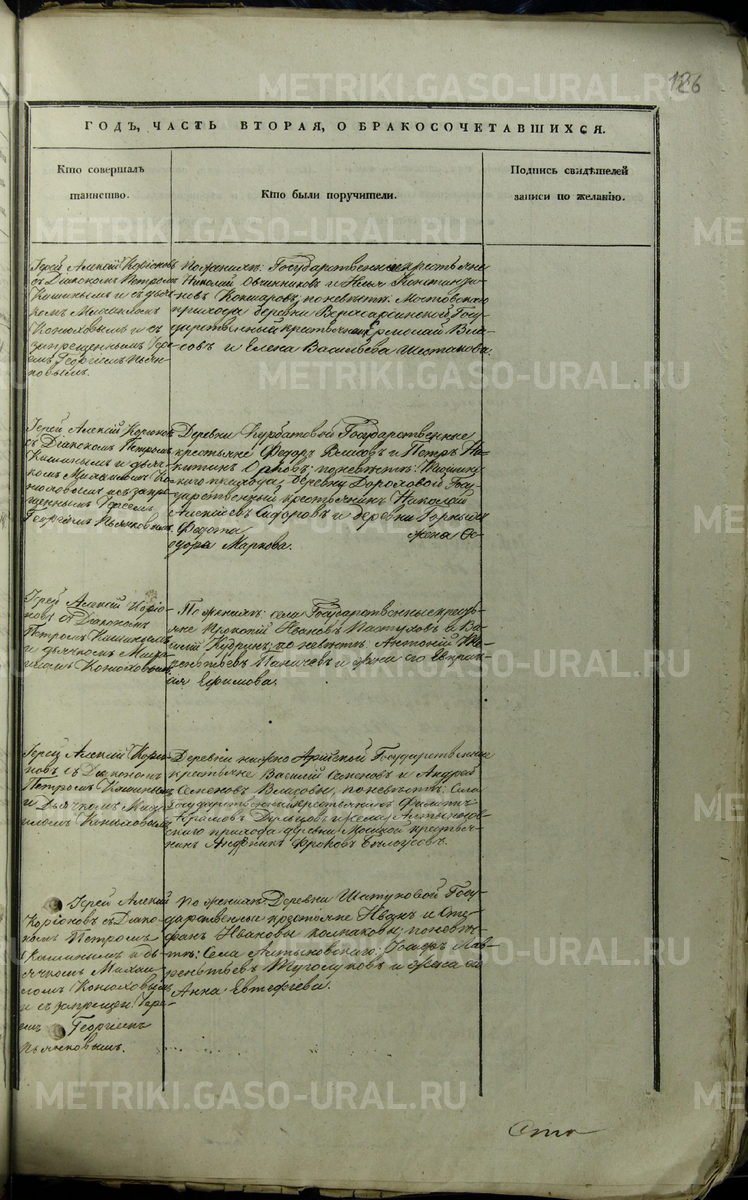 126
ГОДЪ, ЧАСТЬ ВТОРАЯ, О БРАКОСОЧЕТАВШИХСЯ.
Кто совершалъ
таинство.
Кто были поручители.
Подпись свидѣтелей
записи по желанію.
Іерей Алексій Коріоновъ
съ Діакономъ Петромъ
Кашинымъ и съ дьяч-
комъ Михаиломъ
Конюховымъ и съ
запрещеннымъ Іере-
емъ Георгіемъ Пьян-
ковымъ.
По женихѣ: Государственные крестьяне
Николай Овчинниковъ и Илья Константи-
новъ Кокшаровъ, по невѣстѣ: Мостовского
прихода деревни Верхъ Госу-
дарственный крестьянинъ Ермолай Вла-
совъ и Елена Васильева Шестакова.
Іерей Алексій Коріоновъ
съ Діакономъ Петромъ
Кашинымъ и дьяч-
комъ Михаиломъ Ко-
нюховымъ и съ запре-
щеннымъ Іереемъ
Георгіемъ Пьянковымъ.
Деревни Курбатовой Государственные
крестьяне Федоръ Власовъ и Петръ Ни-
китинъ по невѣстѣ:
прихода деревни Дороховой Госу-
дарственный крестьянинъ Николай
Алексѣевъ Сидоровъ и деревни
Федота жена Ѳе-
одора Маркова.
Іерей Алексій Коріо-
новъ съ Діакономъ
Петромъ Кашинымъ
и дьячкомъ Миха-
иломъ Конюховымъ
По женихѣ: села Государственные кресть-
яне Прокопій Ивановъ Пастуховъ и Ва-
силій Кудринъ; по невѣстѣ Антоній
Паничевъ и жена его Евпра-
ія Ефимова.
Іерей Алексій Коріо-
новъ съ Діакономъ
Петромъ Кашинымъ
и Дьячкомъ Миха-
иломъ Конюховымъ
Деревни нижно Арійской Государственные
крестьяне Василій Семеновъ и Андрей
Семеновъ Власовы, по невѣстѣ: Села
Государственный крестьянинъ Филатъ
и села Алтынов-
скаго прихода деревни крестья-
нинъ Бѣлоусовъ.
Іерей Алексій
Коріоновъ съ Діако-
номъ Петромъ
Кашинымъ и дь-
ячкомъ Михаи-
ломъ Конюховымъ
и съ запрещен. Іере-
емъ Георгіемъ
Пьянковымъ.
По женихѣ: Деревни Шатуновой Госу-
дарственные крестьяне Иванъ и Сте-
фанъ Ивановы Колпаковы; по невѣс-
тѣ: Села Алтыновскаго: Лав-
рентьевъ Туголуковъ и жена его
Анна Евтефѣева.